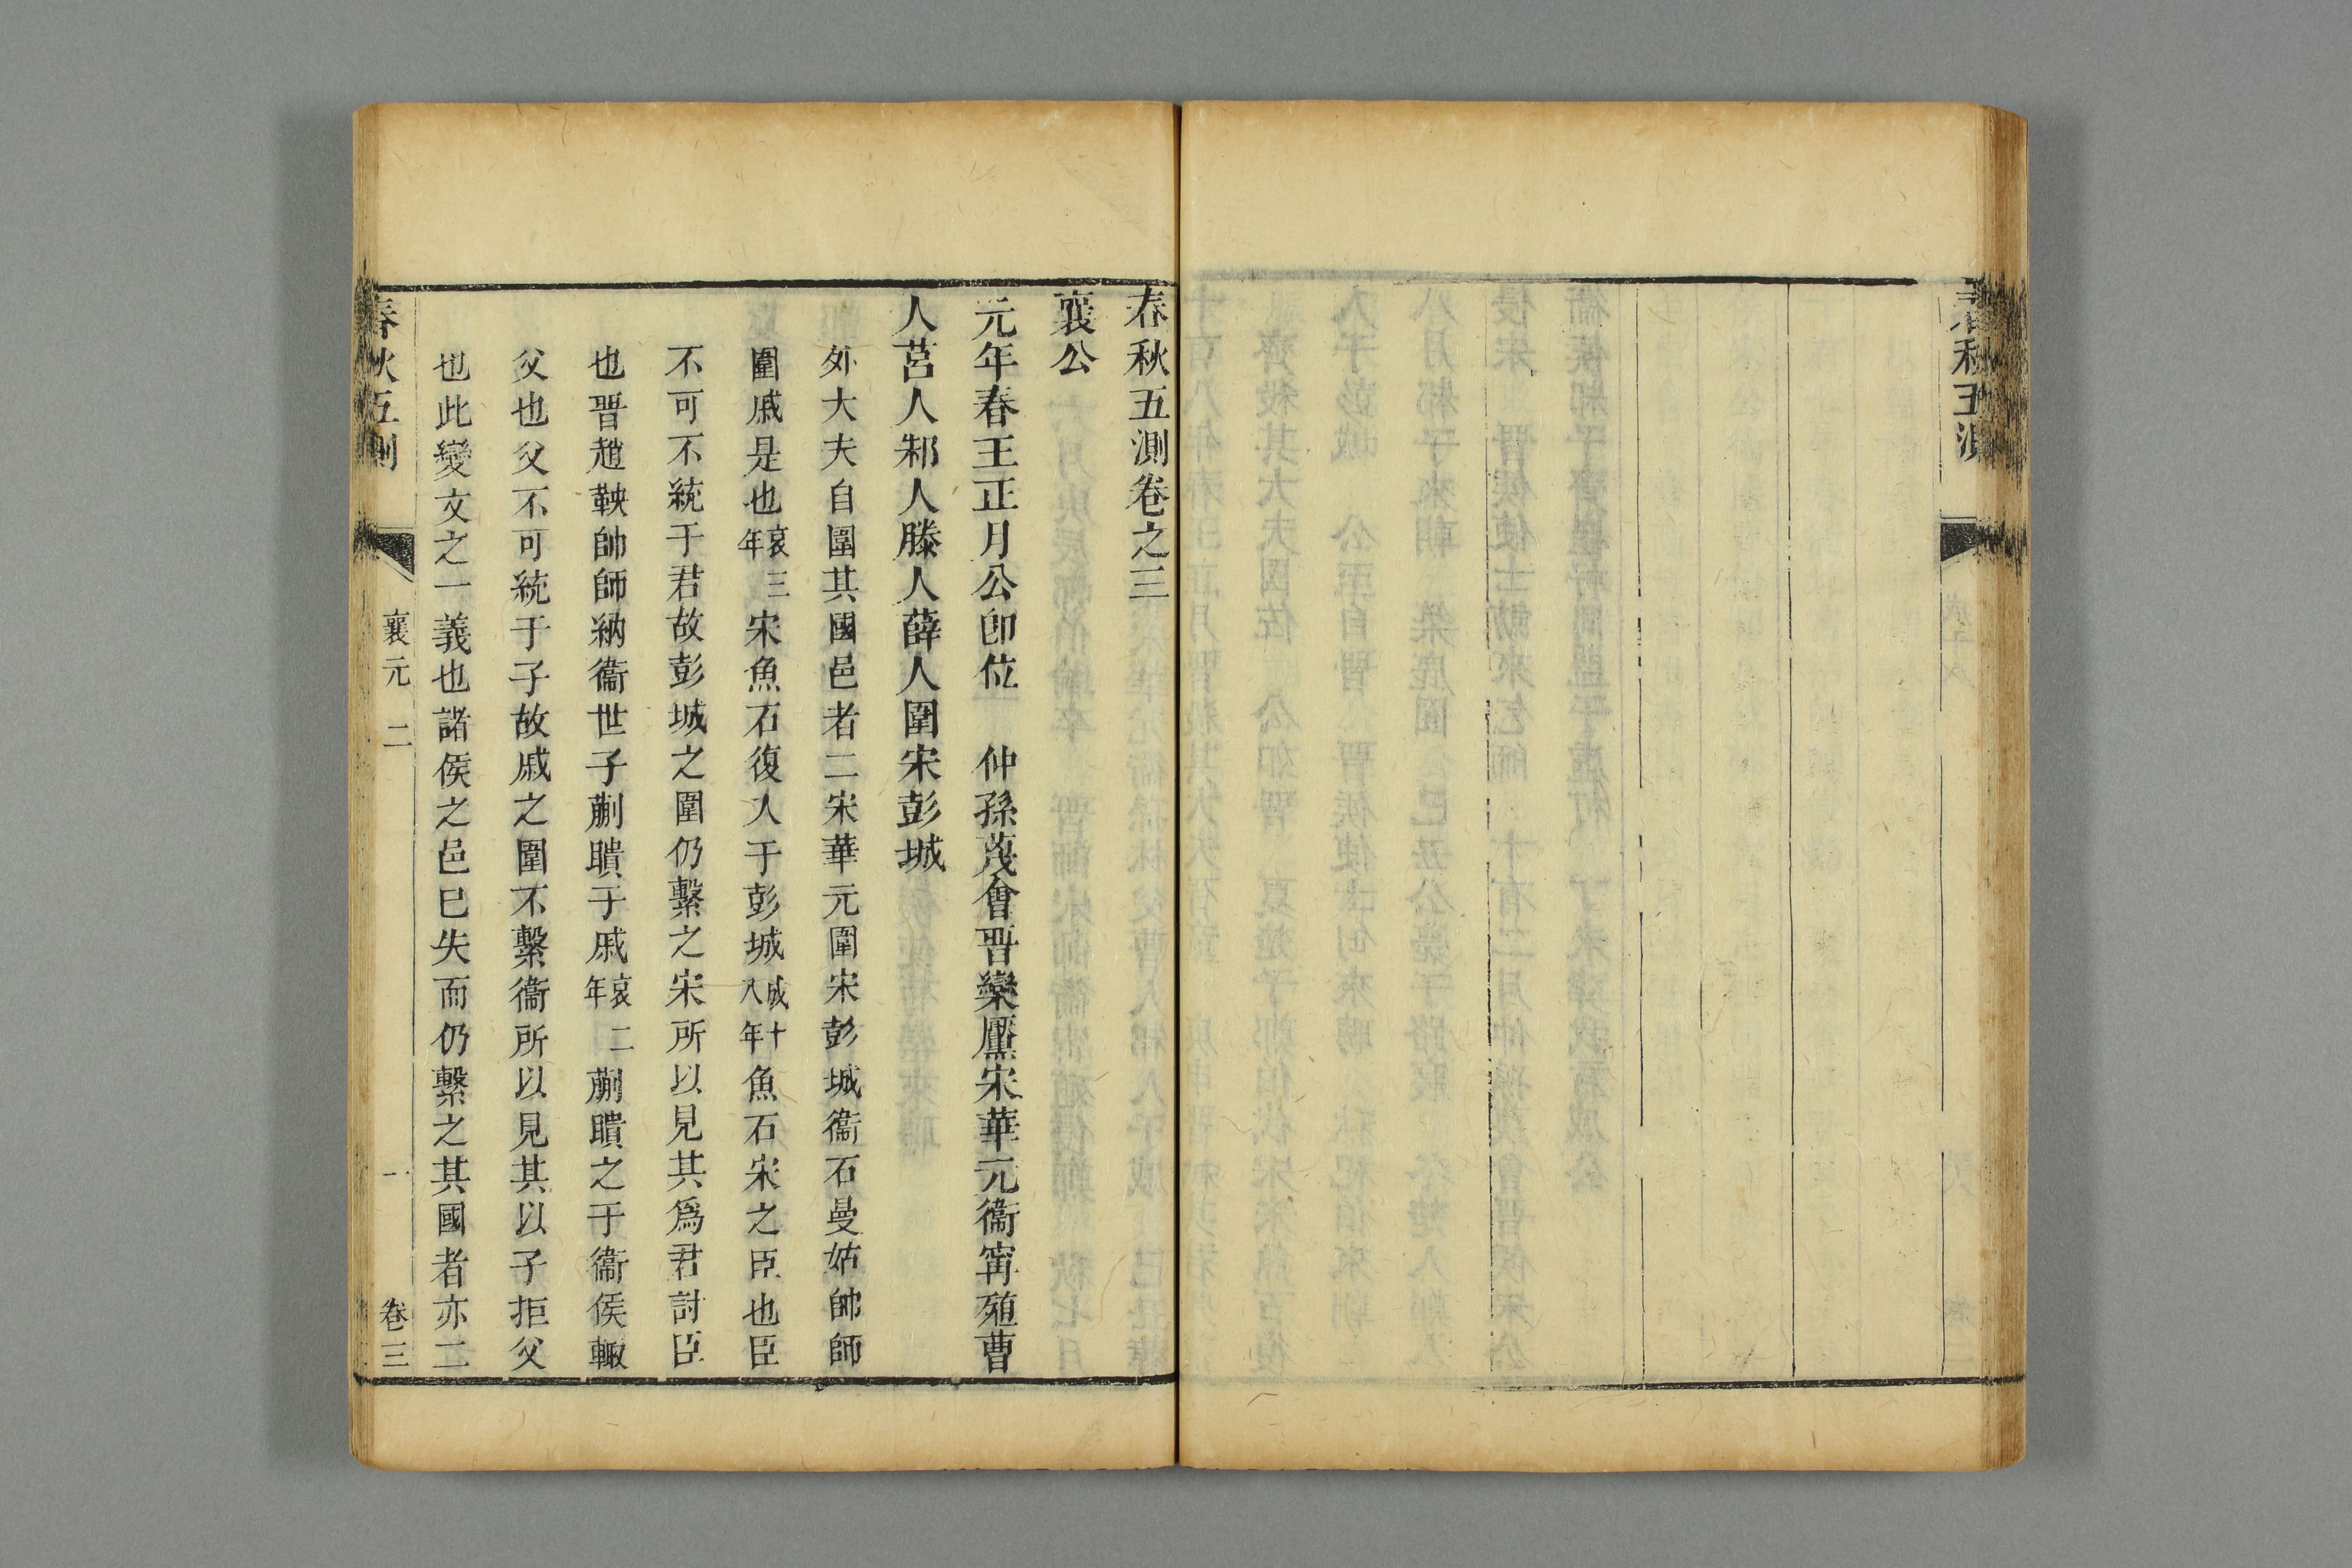 春秋五測
春秋五測卷之三
襄公
元年春王正月公卽位　仲孫蔑會晉欒黶宋華元衞甯殖曹
人莒人邾人滕人薛人圍宋彭城
外大夫自圍其國邑者二宋華元圍宋彭城衞石曼姑帥師
圍戚是也哀三年宋魚石復入于彭城成十八年魚石宋之臣也臣
不可不統于君故彭城之圍仍繫之宋所以見其爲君討臣
也晉趙鞅帥師納衞世子蒯聵于戚哀二年蒯聵之于衞侯輒
父也父不可統于子故戚之圍不繫衞所以見其以子拒父
也此變文之一義也諸侯之邑已失而仍繫之其國者亦二
春秋五測　襄元　二　一　卷三